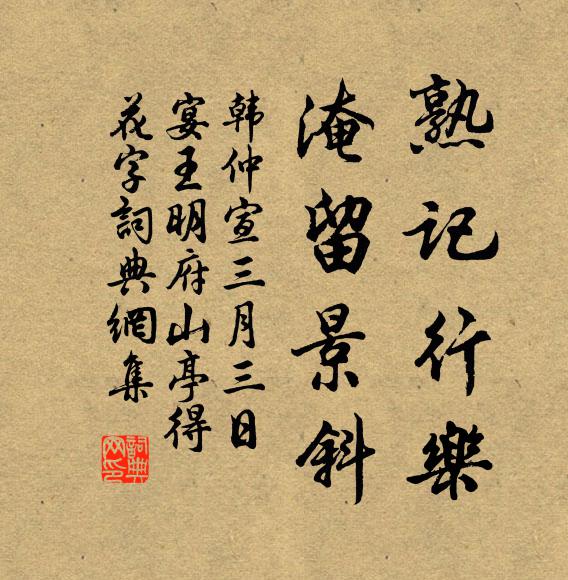 熟记行樂
淹留景斜
韩仲宣三月三日
宴王明府山亭得
花字詞典網集
詞典
网印